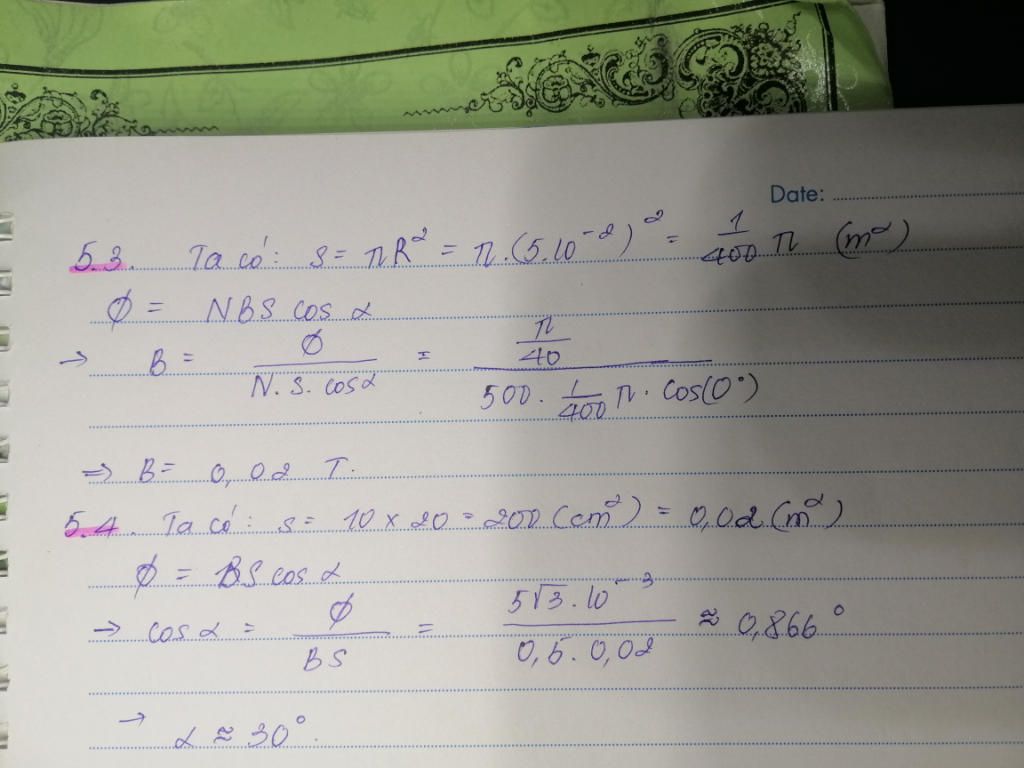 Date:
5.3. Ta có: S = πR² = π.(5.10⁻²)² = 1/400 π (m²)
Φ = NBS cos α
→ B = Φ/(N.S.cosα) = (π/40)/(500 . 1/400 π . cos(0°))
=> B = 0,02 T.
5.4. Ta có: S = 10 x 20 = 200 (cm²) = 0,02 (m²)
Φ = BS cos α
→ cos α = Φ/BS = (5√3.10⁻³)/(0,5.0,02) ≈ 0,866°
→ α ≈ 30°.